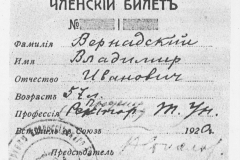 ЧЛЕНСКІЙ БИЛЕТЪ
№
Фамилія Вернадскій
Имя Владимир
Отчество Иванович
Возрастъ 57 л.
Профессія Ректоръ Т. Ун.
Вступилъ въ Союзъ 1920 г.
Предсѣдатель